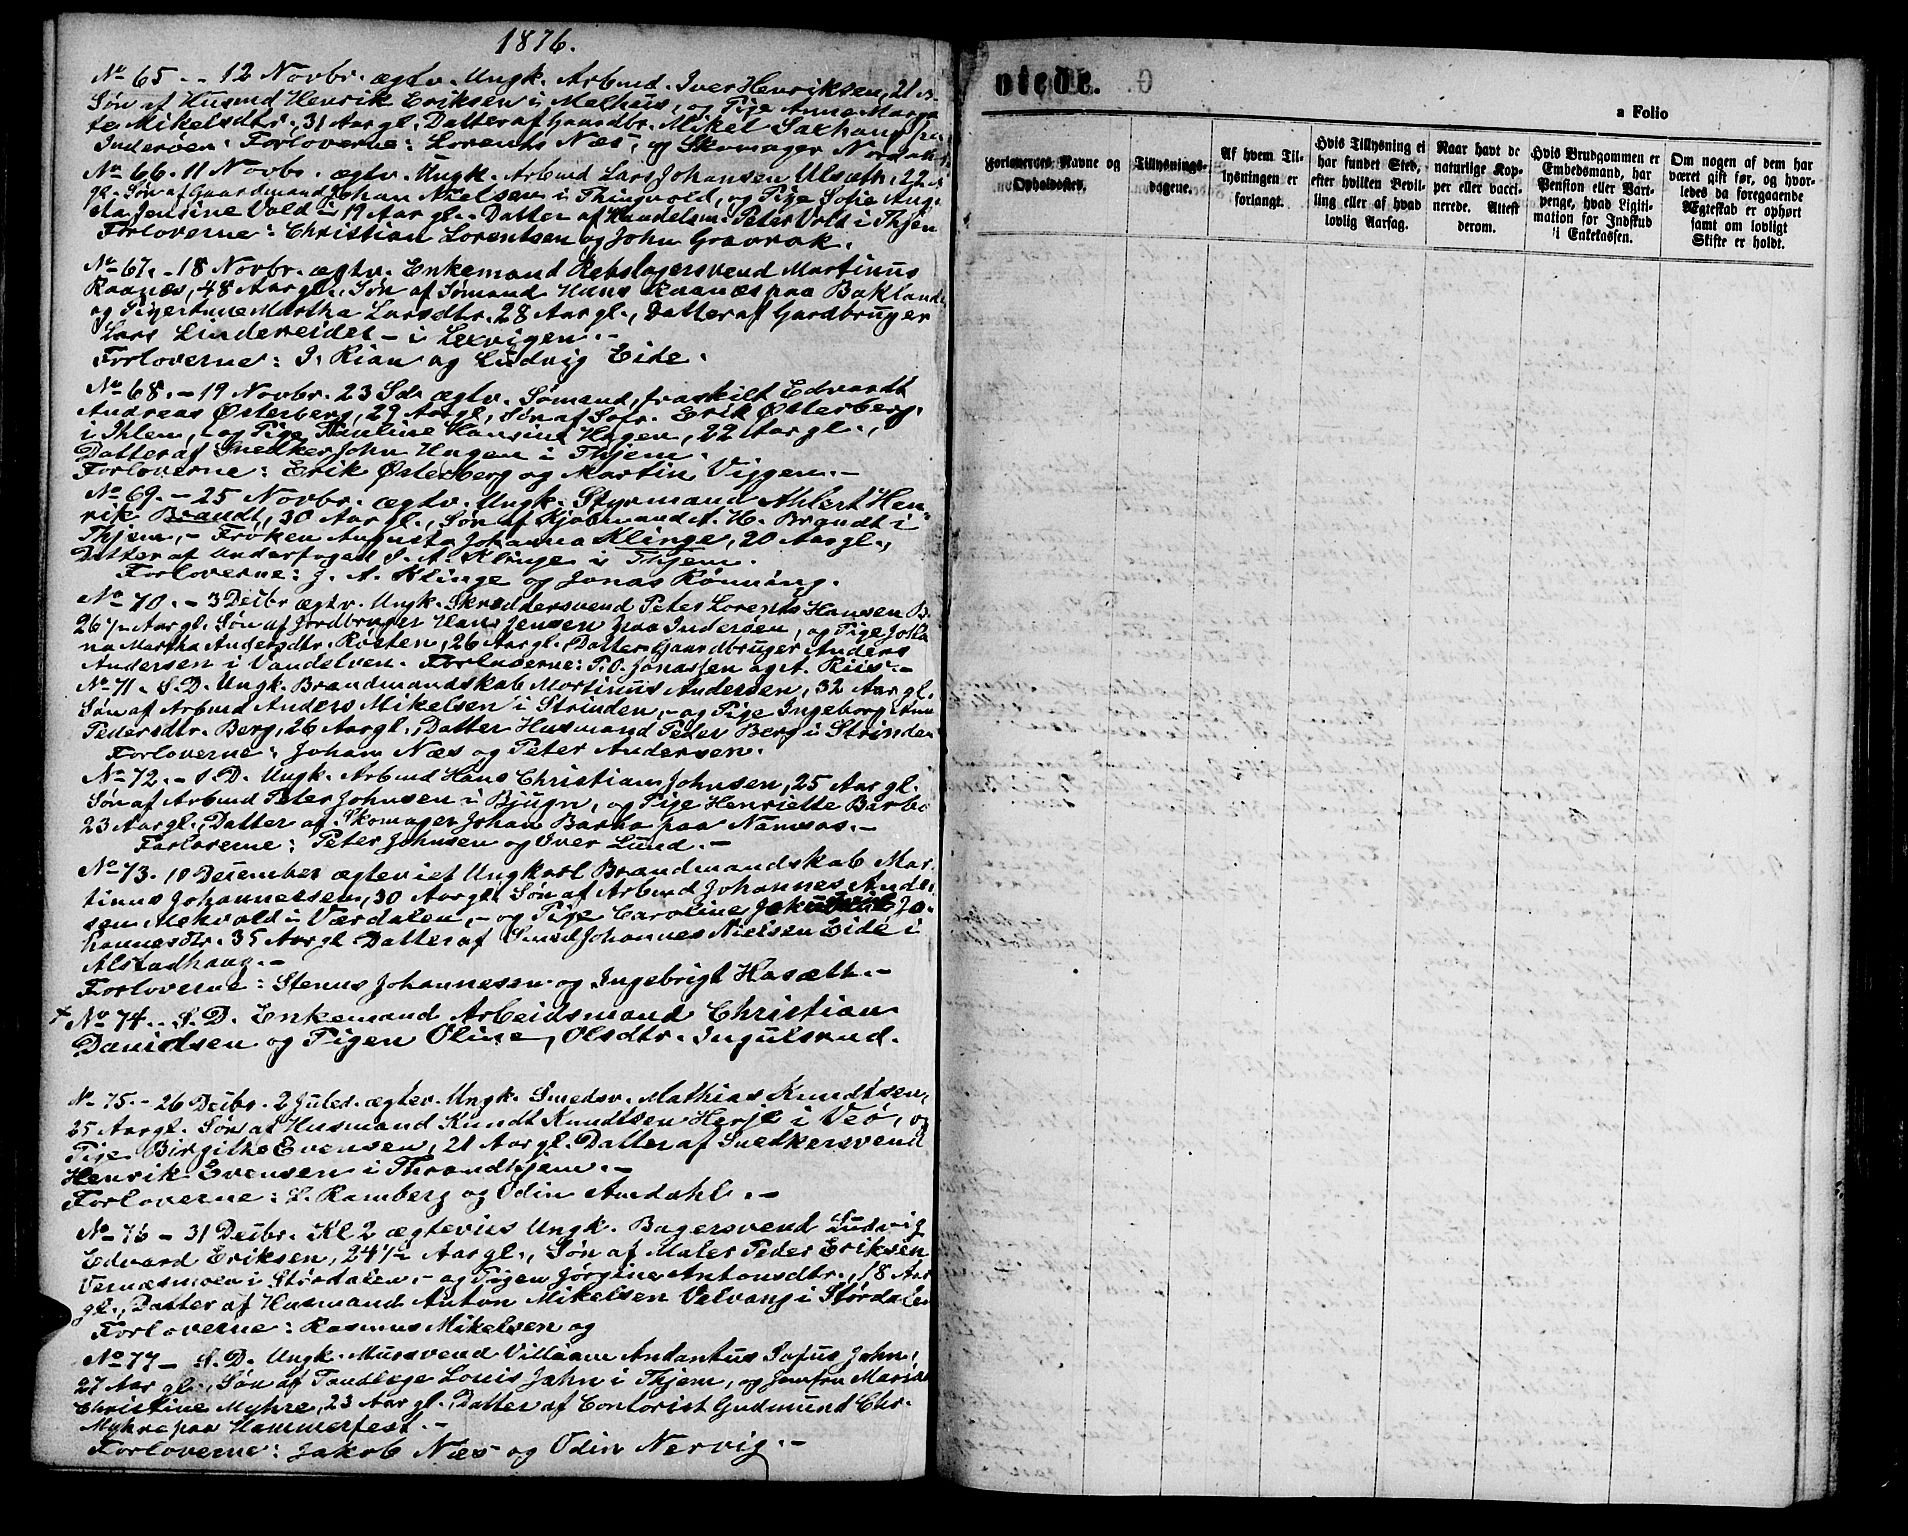 1876.
No 65. - 12 Novbr. ægtv. Ungk. Arbmd. Iver Henriksen, 21
Søn af Husmd Henrik Eriksen i Melhus, og Pige Anne Marga
te Mikelsdtr, 31 Aar gl. Datter af Gaardbr. Mikel Saxhaug paa
Inderøen. Forloverne: Lorents Næs, og Skomager Nordah
No 66. 11 Novbr. ægtv. Ungk. Arbmd Lars Johansen Ulsæth, 22
gl. Søn af Gaardmand Johan Nielsen i Thingvold, og Pige Sofie Aug
Jensine Vold - 19 Aar gl. - Datter af Handelsm: Peter Vold i Thjem
Forloverne: Christian Lorentsen og John Gravrok.
No 67. - 18 Novbr. ægtv. Enkemand Rebslagersvend Martinus
Raanæs, 48 Aar gl., Søn af Sømand Hans Raanæs paa Baklande
og Pige Ane Martha Larsdtr. 28 Aar gl., Datter af Gardbruger
Lars Lindereidet - i Lexvigen. -
Forloverne: I. Rian og Ludvig Eide.
No 68. - 19 Novbr. 23 Sdr ægtv. Sømand, fraskilt Edvardt
Andreas Østerberg, 29 Aar gl, Søn af Sofr. Erik Østerberg.
i Ihlen, - og Pige Pauline Hansine Hagen, 22 Aar gl.,
Datter af Snedker John Hagen i Thjem.
Forloverne: Erik Østerberg og Martin Viggen. -
No 69. - 25 Novbr. ægtv. Ungk. Styrmand Ahlert Hen-
rik Brandt, 30 Aar gl., Søn af Kjøbmand A. H. Brandt i
Thjem, - Frøken Augusta Johanna Klinge, 20 Aar gl.,
Datter af Underfoged J. A. Klinge i Thjem.
Forloverne: J. A. Klinge og Jonas Rønning.
No 70. - 3 Decbr ægtv. Ungk. Skreddersvend Peter Lorents Hansen B.
26 ½ Aar gl. Søn af Jordbruger Hans Jensen paa Inderøen, og Pige Joha
na Martha Andersdtr. Røsten, 26 Aar gl. Datter Gaardbruger Anders
Andersen i Vandelven. Forloverne: P. O. Jonassen og A. Riis. -
No 71. S. D. Ungk. Brandmandskab Mortinus Andersen, 32 Aar gl.
Søn af Arbmd Anders Mikelsen i Strinden, - og Pige Ingeborg Anna
Pedersdtr. Berg, 26 Aar gl., Datter Husmand Peder Berg i Strinden
Forloverne: Johan Næs og Peter Andersen.
No 72. - S. D. Ungk. Arbmd Hans Christian Johnsen, 25 Aar gl.
Søn af Arbmd Peter Johnsen i Bjugn, og Pige Henriette Barbo
23 Aar gl., Datter af Skomager Johan Barbo paa Namsos. -
Forloverne: Peter Johnsen og Over Lund. -
No 73. 10 December ægteviet Ungkarl Brandmandskab Mar-
tinus Johannessen, 30 Aar gl. Søn af Arbmd Johannes Ander
sen Mekvold i Værdalen, - og Pige Caroline Jo-
hannesdtr. 35 Aar gl. Datter af Smed Johannes Nielsen Eide i
Alstadhaug. -
Forloverne: Stenus Johannesen og Ingebrigt Hasæth. -
+ No 74. S. D. Enkemand Arbeidsmand Christian
Danidsen og Pigen Oline, Olsdtr. Ingulsrud.
No 75. - 26 Decbr. 2 Juled. ægtev. Ungk. Smedsv. Mathias Knudtsen,
25 Aar gl. Søn af Husmand Knudt Knudtsen Herje i Veø, og
Pige Birgithe Evensen, 21 Aar gl. Datter af Snedkersvend
Henrik Evensen i Thrandhjem. -
Forloverne: L. Ramberg og Odin Amdahl. -
No 76 - 31 Decbr. Kl 2 ægteviet Ungk. Bagersvend Ludvig
Edvard Eriksen, 24 ½ Aar gl., Søn af Maler Peder Eriksen
Vernæsmoen i Størdalen, - og Pigen Jørgine Antonsdtr., 18 Aar
gl., Datter af Husmand Anton Mikelsen Velvang i Størdalen
Forloverne: Rasmus Mikelsen og
No 77 - S. D. Ungk. Mursvend Villiam Andanthus Sofus Jahn,
27 Aar gl., Søn af Tandlæge Louis Jahn i Thjem, og Jomfru Maria
Christine Myhre, 23 Aar gl., Datter af Contorist Gudmund Chr.
Myhre paa Hammerfest. -
Forloverne: Jakob Næs og Odin Nervig. -
viede.
a Folio
Forlovernes Navne og Opholdssted.
Tillysnings-dagene.
Af hvem Til-lysningen er forlangt.
Hvis Tillysning ei har fundet Sted, efter hvilken Bevil-ling eller af hvad lovlig Aarsag.
Naar havt de naturlige Kop-per eller vacci-nerede. Attest derom.
Hvis Brudgommen er Embedsmand, har Pension eller Vart-penge, hvad Ligiti-mation for Indskud i Enkekassen.
Om nogen af dem har været gift før, og hvor-ledes da foregaaende Ægteskab er ophørt samt om lovligt Skifte er holdt.